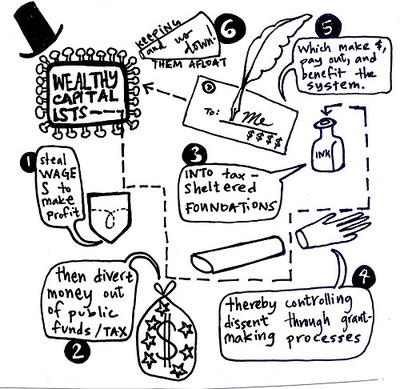 WEALTHY
CAPITAL
ISTS—
1
steal
WAGE
S to
make
profit
2
then divert
money out
of public
funds/TAX
$
3
INTO tax-
sheltered
FOUNDATIONS
4
thereby controlling
dissent through grant-
making processes
INK
5
Which make $,
pay out, and
benefit the
system.
To: Me
$$$$
6
KEEPING
and us
down!
THEM AFLOAT